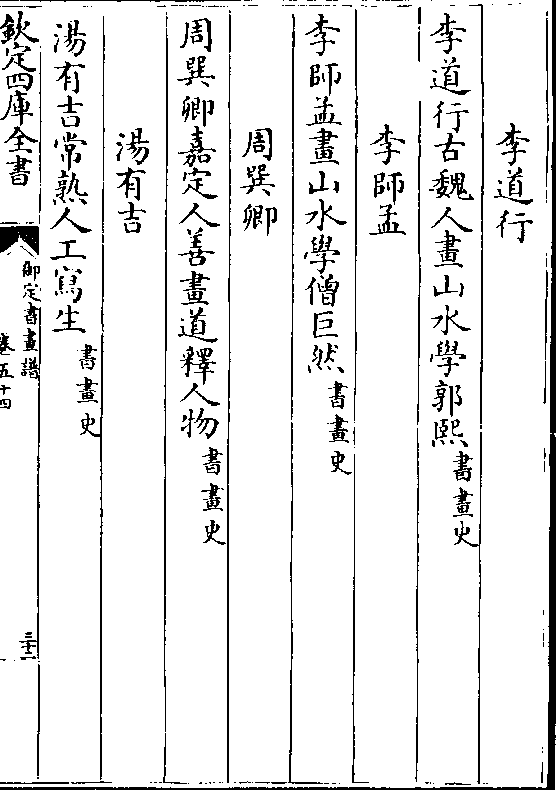 李道行
李道行古魏人畫山水學郭熙書畫史
李師孟
李師孟畫山水學僧巨然書畫史
周巽卿
周巽卿嘉定人善畫道釋人物書畫史
湯有吉
湯有吉常熟人工寫生書畫史
欽定四庫全書
御定書畫譜
卷五十四
三十二